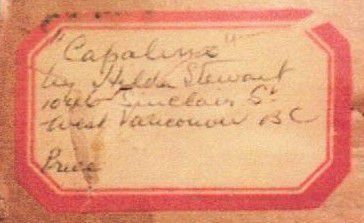 "Capalina"
by Hilda Stewart
Sinclair St
West Vancouver BC
Price